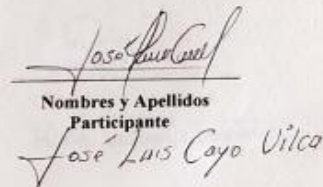 José
Nombres y Apellidos
Participante
José Luis Cayo Vilca